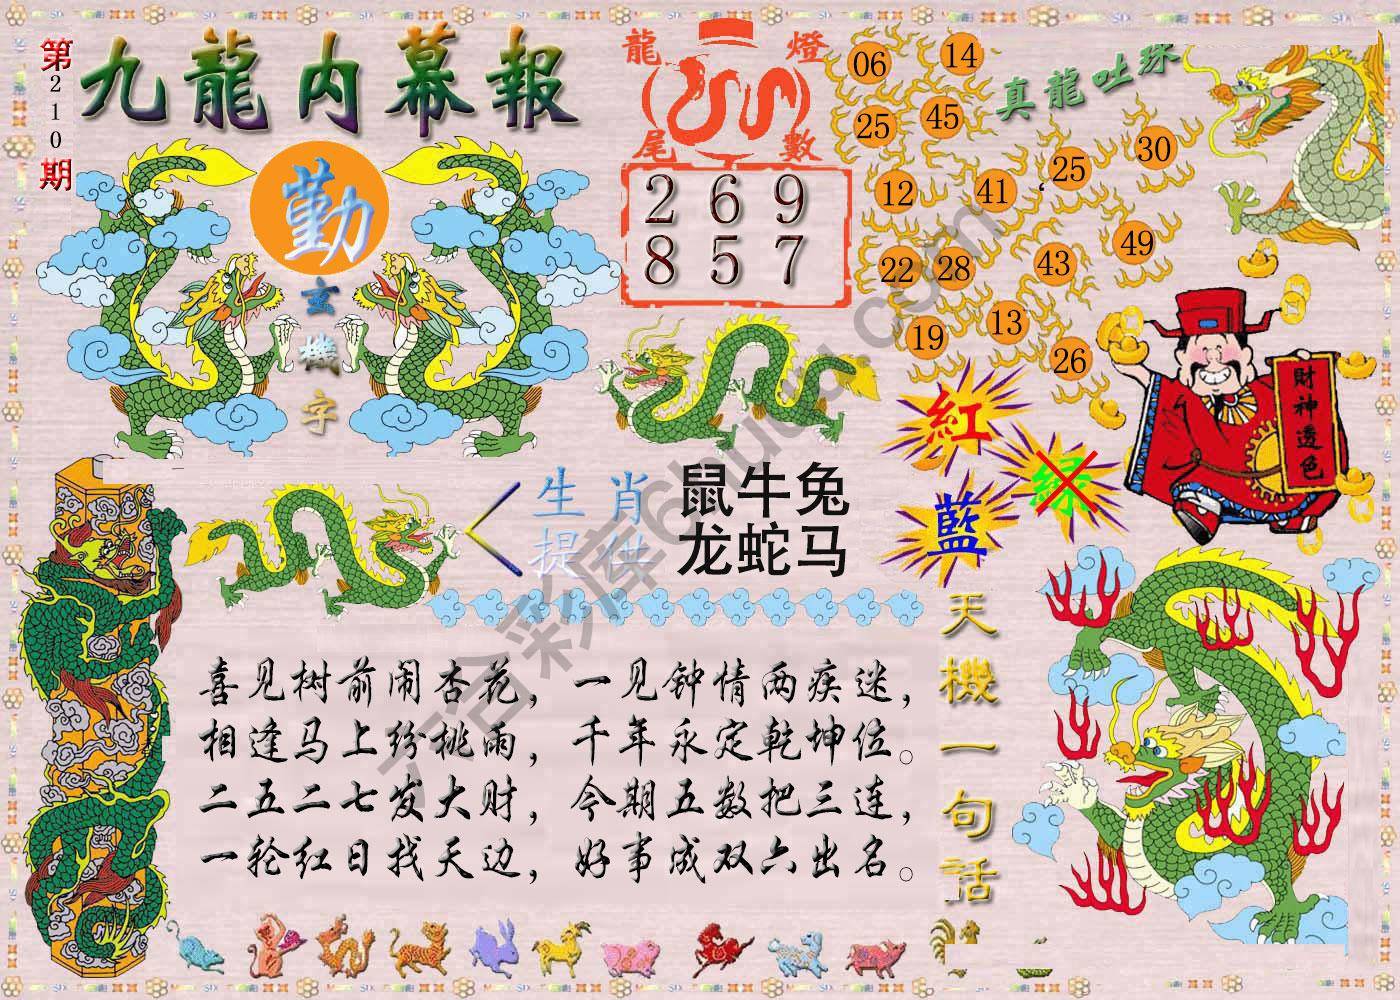 第210期
九龍内幕報
勤
玄機字
龍燈
尾數
2 6 9
8 5 7
真龍吐珠
06 14
25 45
12 41 25 30
22 28 43 49
19 13 26
財神透色
紅
藍 緑
生肖 鼠牛兔
提供 龙蛇马
天機一句話
喜见树前闹杏花，一见钟情两疾迷，
相逢马上纷桃雨，千年永定乾坤位。
二五二七发大财，今期五数把三连，
一轮红日找天边，好事成双六出名。
六合彩库6huuu.com